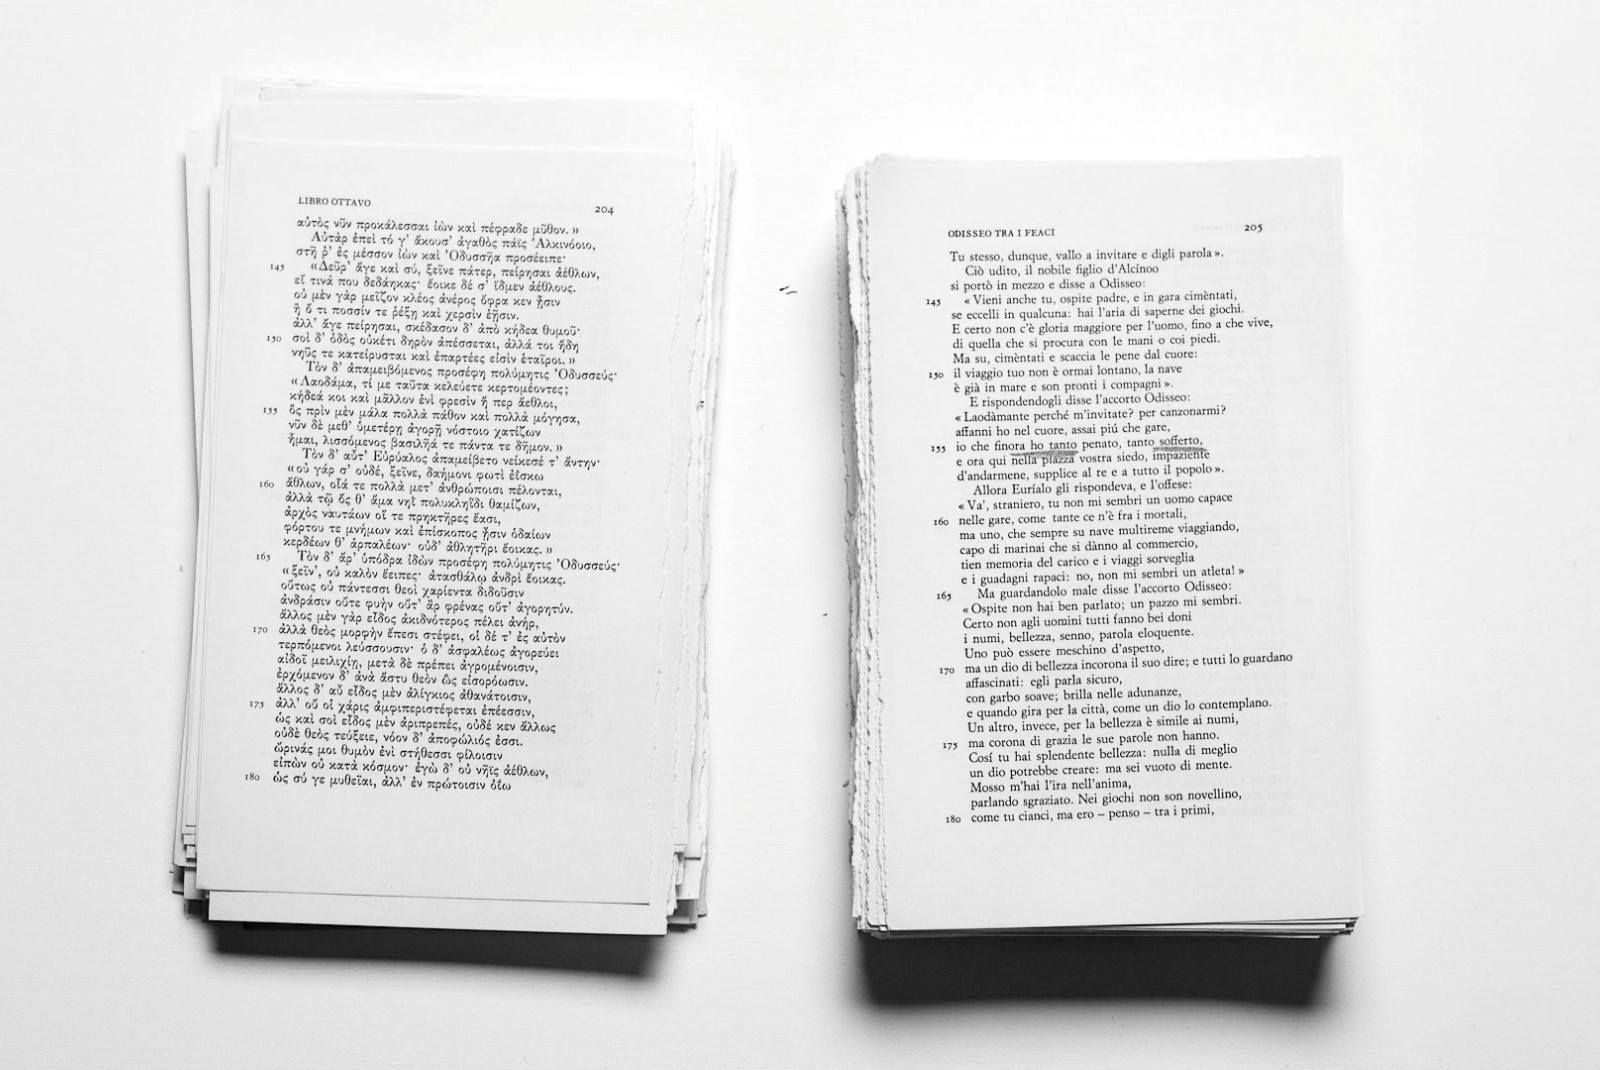 LIBRO OTTAVO
204
αὐτὸς νῦν προκάλεσσαι ἰὼν καὶ πέφραδε μῦθον. »
Αὐτὰρ ἐπεὶ τό γ' ἄκουσ' ἀγαθὸς πάϊς Ἀλκινόοιο,
στῆ ῥ' ἐς μέσσον ἰὼν καὶ Ὀδυσσῆα προσέειπε·
145 «Δεῦρ' ἄγε καὶ σύ, ξεῖνε πάτερ, πείρησαι ἀέθλων,
εἴ τινά που δεδάηκας· ἔοικε δέ σ' ἴδμεν ἀέθλους.
οὐ μὲν γὰρ μεῖζον κλέος ἀνέρος ὄφρα κεν ᾖσιν
ἢ ὅ τι ποσσίν τε ῥέξῃ καὶ χερσὶν ἑῇσιν.
ἀλλ' ἄγε πείρησαι, σκέδασον δ' ἀπὸ κήδεα θυμοῦ·
150 σοὶ δ' ὁδὸς οὐκέτι δηρὸν ἀπέσσεται, ἀλλά τοι ἤδη
νηῦς τε κατείρυσται καὶ ἐπαρτέες εἰσὶν ἑταῖροι. »
Τὸν δ' ἀπαμειβόμενος προσέφη πολύμητις Ὀδυσσεύς·
« Λαοδάμα, τί με ταῦτα κελεύετε κερτομέοντες;
κήδεά μοι καὶ μᾶλλον ἐνὶ φρεσὶν ἤ περ ἄεθλοι,
155 ὃς πρὶν μὲν μάλα πολλὰ πάθον καὶ πολλὰ μόγησα,
νῦν δὲ μεθ' ὑμετέρῃ ἀγορῇ νόστοιο χατίζων
ἧμαι, λισσόμενος βασιλῆά τε πάντα τε δῆμον. »
Τὸν δ' αὖτ' Εὐρύαλος ἀπαμείβετο νείκεσέ τ' ἄντην·
« οὐ γάρ σ' οὐδέ, ξεῖνε, δαήμονι φωτὶ ἐΐσκω
160 ἄθλων, οἷά τε πολλὰ μετ' ἀνθρώποισι πέλονται,
ἀλλὰ τῷ ὅς θ' ἅμα νηῒ πολυκλήϊδι θαμίζων,
ἀρχὸς ναυτάων οἵ τε πρηκτῆρες ἔασι,
φόρτου τε μνήμων καὶ ἐπίσκοπος ᾖσιν ὁδαίων
κερδέων θ' ἁρπαλέων· οὐδ' ἀθλητῆρι ἔοικας. »
165 Τὸν δ' ἄρ' ὑπόδρα ἰδὼν προσέφη πολύμητις Ὀδυσσεύς·
« ξεῖν', οὐ καλὸν ἔειπες· ἀτασθάλῳ ἀνδρὶ ἔοικας.
οὕτως οὐ πάντεσσι θεοὶ χαρίεντα διδοῦσιν
ἀνδράσιν οὔτε φυὴν οὔτ' ἂρ φρένας οὔτ' ἀγορητύν.
ἄλλος μὲν γὰρ εἶδος ἀκιδνότερος πέλει ἀνήρ,
170 ἀλλὰ θεὸς μορφὴν ἔπεσι στέφει, οἱ δέ τ' ἐς αὐτὸν
τερπόμενοι λεύσσουσιν· ὁ δ' ἀσφαλέως ἀγορεύει
αἰδοῖ μειλιχίῃ, μετὰ δὲ πρέπει ἀγρομένοισιν,
ἐρχόμενον δ' ἀνὰ ἄστυ θεὸν ὣς εἰσορόωσιν.
ἄλλος δ' αὖ εἶδος μὲν ἀλίγκιος ἀθανάτοισιν,
175 ἀλλ' οὔ οἱ χάρις ἀμφιπεριστέφεται ἐπέεσσιν,
ὡς καὶ σοὶ εἶδος μὲν ἀριπρεπές, οὐδέ κεν ἄλλως
οὐδὲ θεὸς τεύξειε, νόον δ' ἀποφώλιός ἐσσι.
ὤρινάς μοι θυμὸν ἐνὶ στήθεσσι φίλοισιν
εἰπὼν οὐ κατὰ κόσμον· ἐγὼ δ' οὐ νῆϊς ἀέθλων,
180 ὡς σύ γε μυθεῖαι, ἀλλ' ἐν πρώτοισιν ὀΐω
ODISSEO TRA I FEACI
205
Tu stesso, dunque, vallo a invitare e digli parola ».
Ciò udito, il nobile figlio d'Alcínoo
si portò in mezzo e disse a Odisseo:
145 « Vieni anche tu, ospite padre, e in gara cimèntati,
se eccelli in qualcuna: hai l'aria di saperne dei giochi.
E certo non c'è gloria maggiore per l'uomo, fino a che vive,
di quella che si procura con le mani o coi piedi.
Ma su, cimèntati e scaccia le pene dal cuore:
150 il viaggio tuo non è ormai lontano, la nave
è già in mare e son pronti i compagni ».
E rispondendogli disse l'accorto Odisseo:
« Laodàmante perché m'invitate? per canzonarmi?
affanni ho nel cuore, assai piú che gare,
155 io che finora ho tanto penato, tanto sofferto,
e ora qui nella piazza vostra siedo, impaziente
d'andarmene, supplice al re e a tutto il popolo ».
Allora Euríalo gli rispondeva, e l'offese:
« Va', straniero, tu non mi sembri un uomo capace
160 nelle gare, come tante ce n'è fra i mortali,
ma uno, che sempre su nave multireme viaggiando,
capo di marinai che si dànno al commercio,
tien memoria del carico e i viaggi sorveglia
e i guadagni rapaci: no, non mi sembri un atleta! »
165 Ma guardandolo male disse l'accorto Odisseo:
« Ospite non hai ben parlato; un pazzo mi sembri.
Certo non agli uomini tutti fanno bei doni
i numi, bellezza, senno, parola eloquente.
Uno può essere meschino d'aspetto,
170 ma un dio di bellezza incorona il suo dire; e tutti lo guardano
affascinati: egli parla sicuro,
con garbo soave; brilla nelle adunanze,
e quando gira per la città, come un dio lo contemplano.
Un altro, invece, per la bellezza è simile ai numi,
175 ma corona di grazia le sue parole non hanno.
Cosí tu hai splendente bellezza: nulla di meglio
un dio potrebbe creare: ma sei vuoto di mente.
Mosso m'hai l'ira nell'anima,
parlando sgraziato. Nei giochi non son novellino,
180 come tu cianci, ma ero – penso – tra i primi,